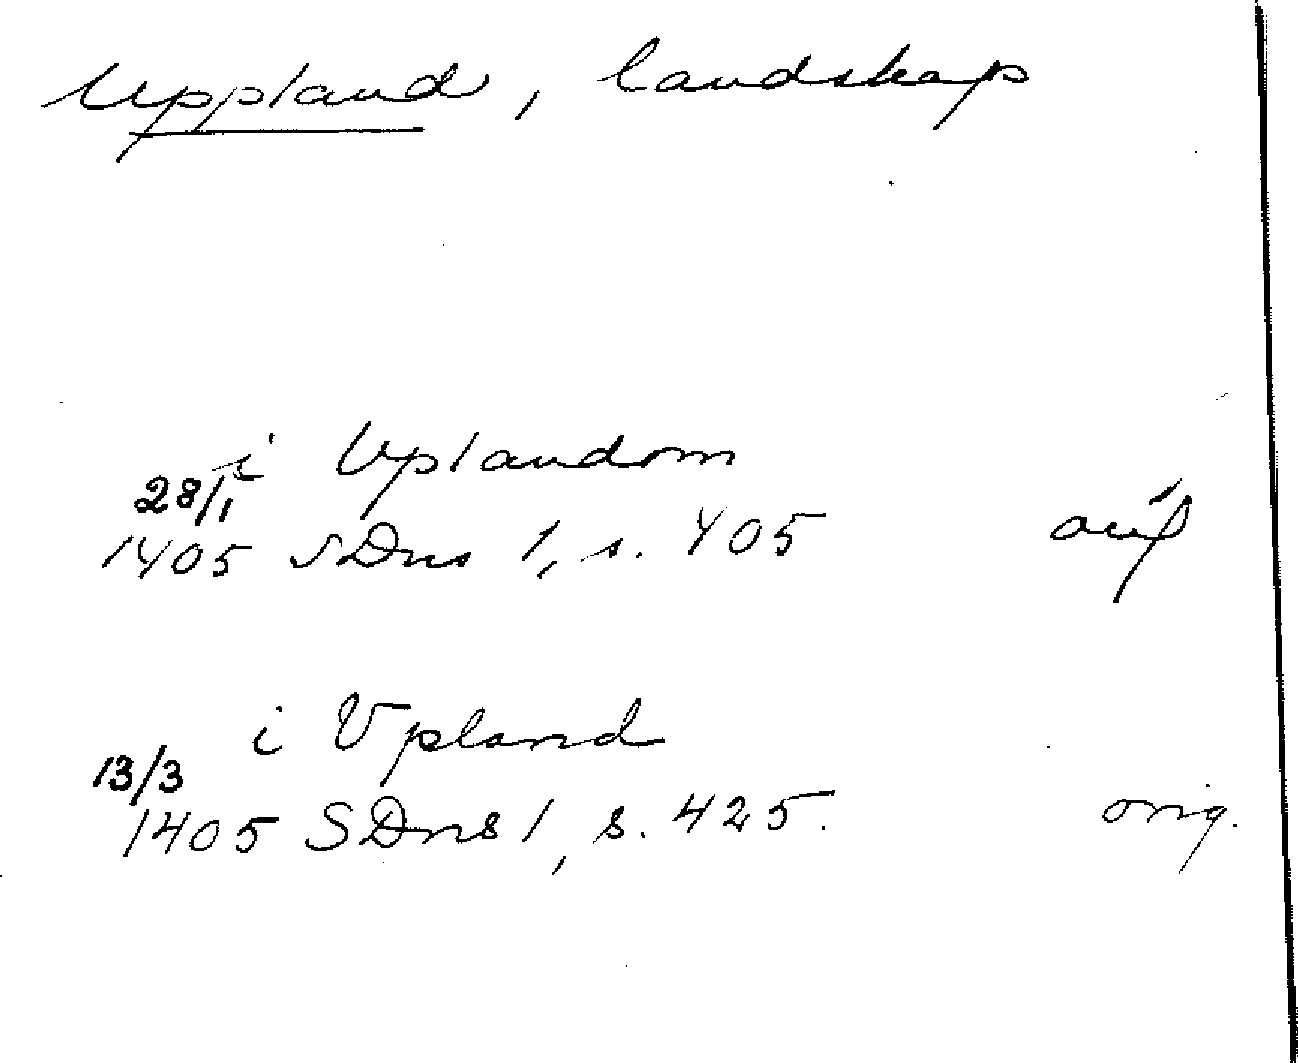 Uppland, landskap
i Uplandom
28/1
1405 SDns 1, s. 405
i Vpland
13/3
1405 SDns 1, s. 425. orig.